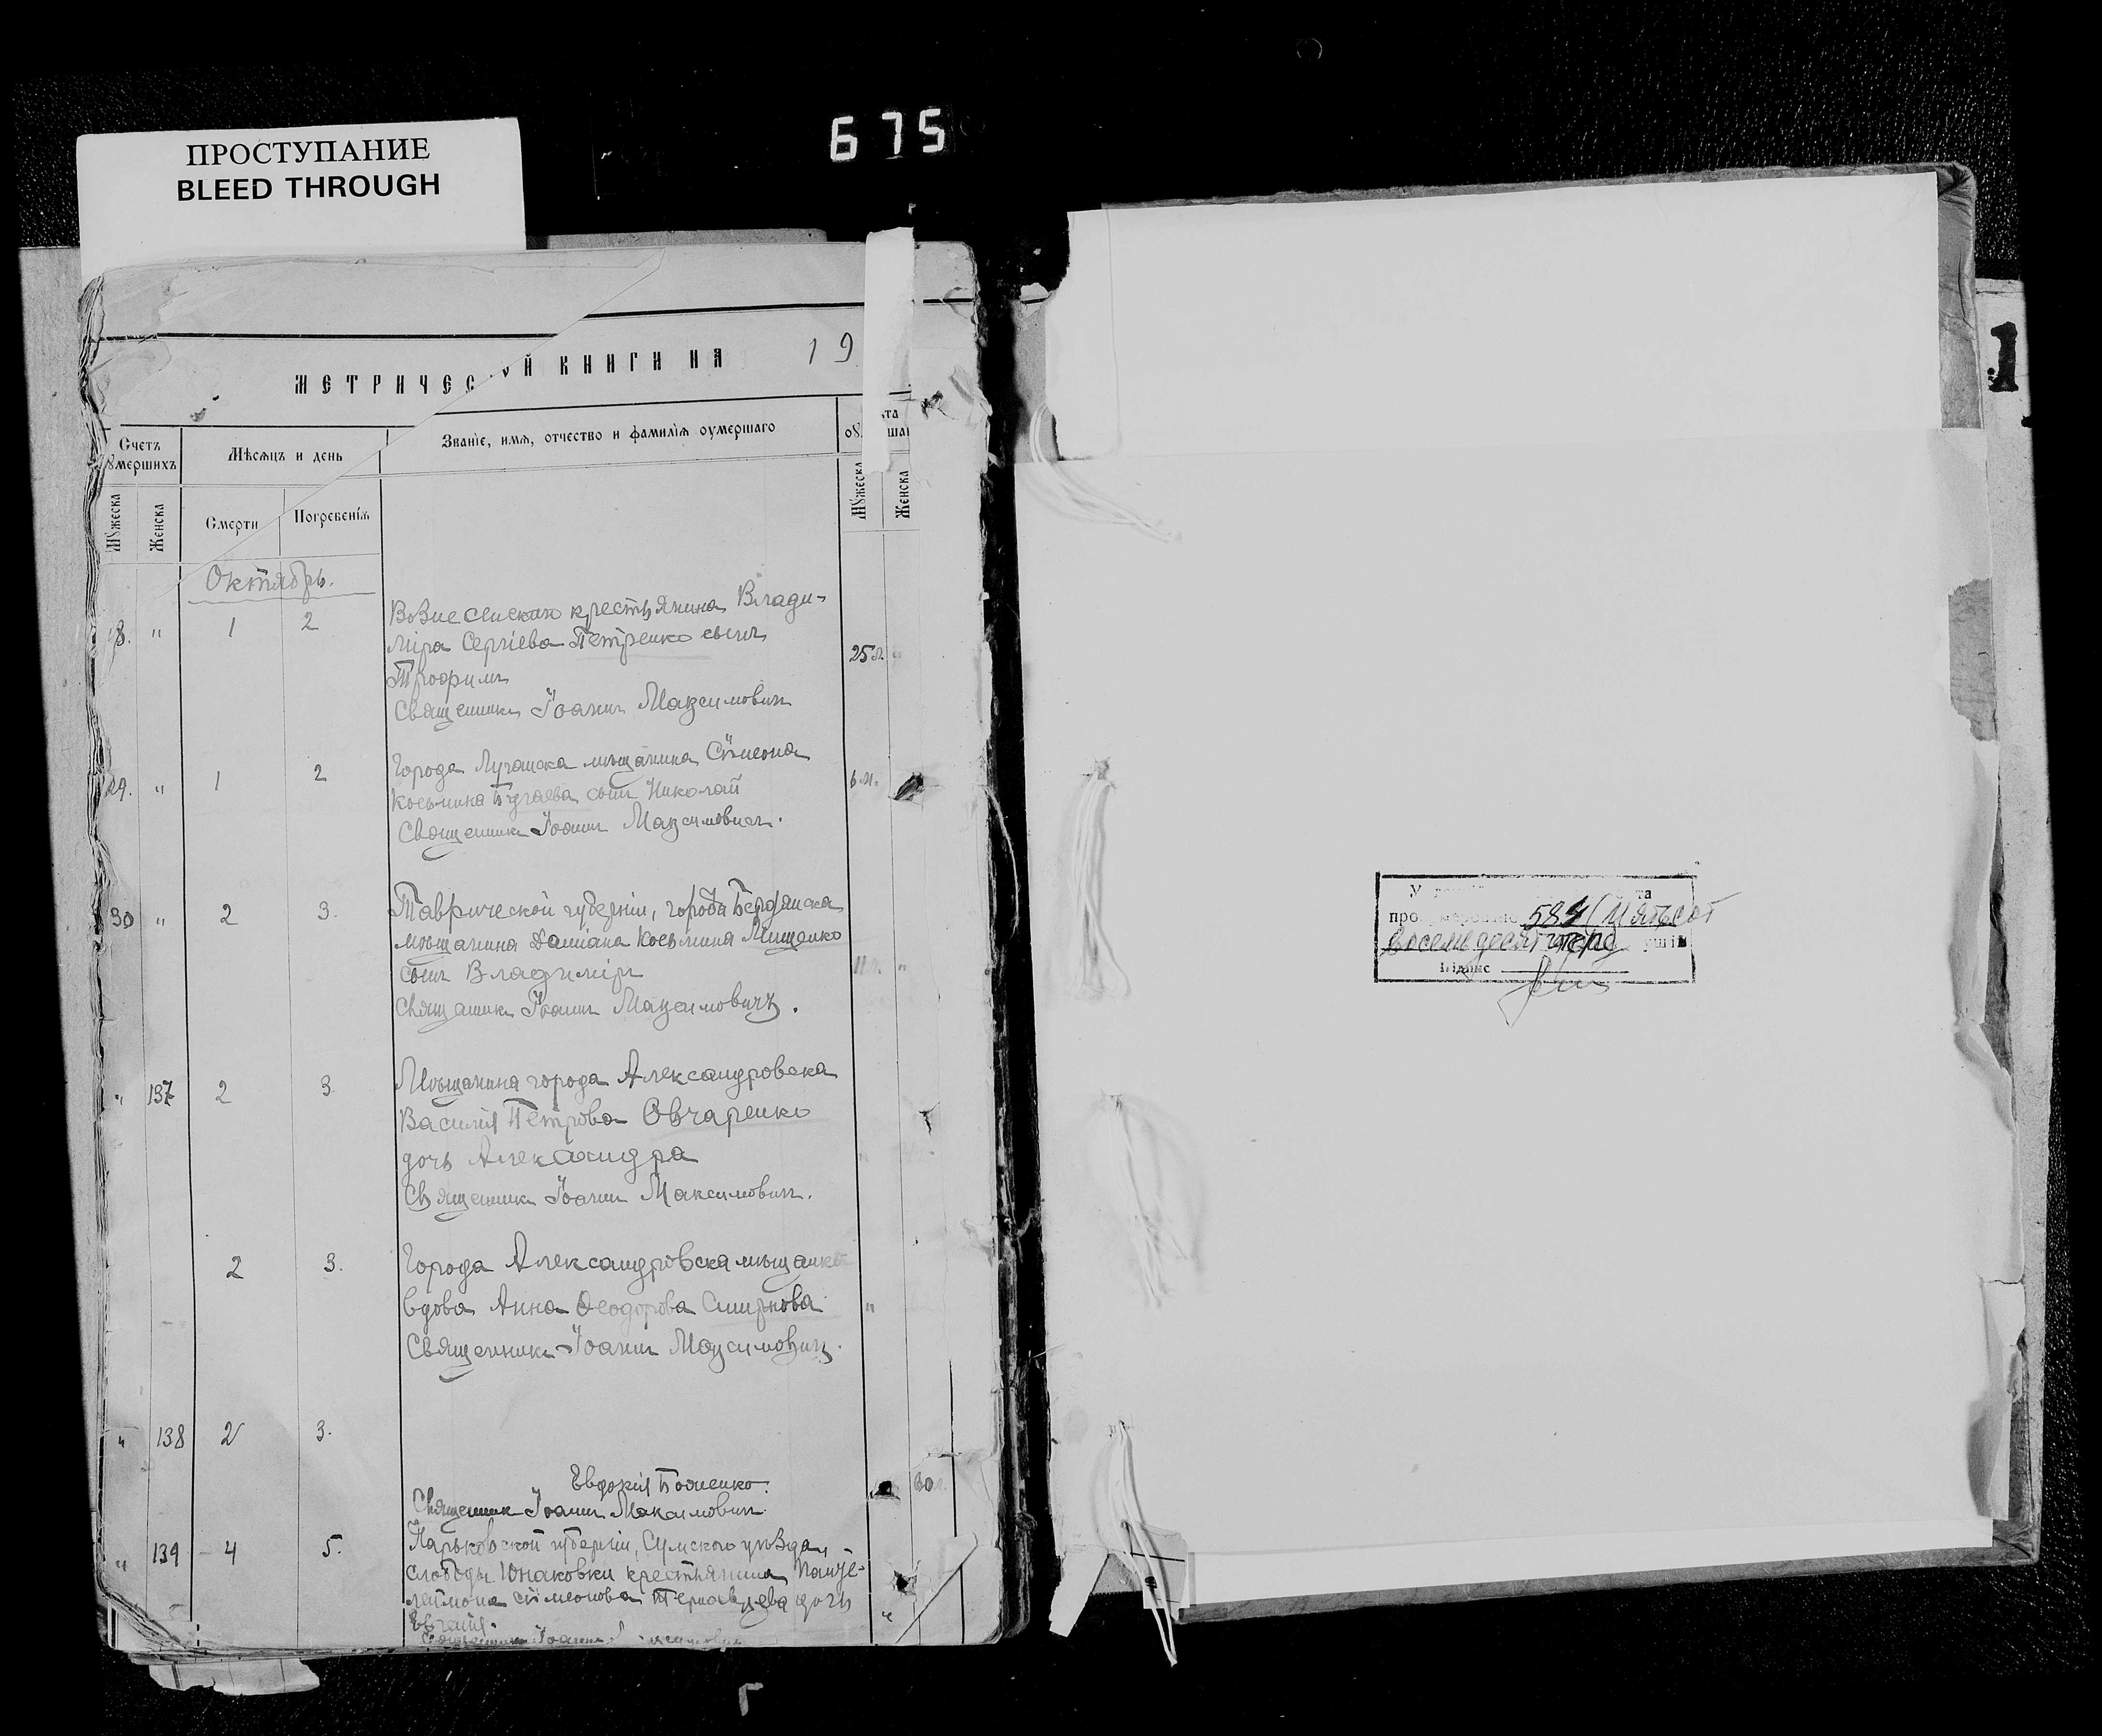 675
ПРОСТУПАНИЕ
BLEED THROUGH
МЕТРИЧЕС ОЙ КНИГИ НА 19
Счетъ ѹмершихъ
Мѣсѧцъ и день
Званїе, имѧ, отчество и фамилїѧ оумершаго
Мꙋжеска
Женска
Смерти
Погребенїѧ
Мꙋжеска
Женска
Октябрь.
8. " 1 2 Вознесенскаго крестьянина Влади-
міра Сергіева Петренко сынъ
25 л. "
Трофимъ
Священникъ Іоаннъ Максимовичъ
29. " 1 2 Города Луганска мѣщанина Сімеона
Косьмина Бугаева сынъ Николай 6 м.
Священникъ Іоаннъ Максимовичъ.
30 " 2 3. Таврической губерніи, города Бердянска
мѣщанина Даміана Косьмина Мищенко
сынъ Владиміръ "
Священникъ Іоаннъ Максимовичъ.
" 137 2 3 Мѣщанина города Александровска
Василія Петрова Овчаренко
дочь Александра
Священникъ Іоаннъ Максимовичъ.
2 3. Города Александровска мѣщанка
вдова Анна Ѳеодорова Смирнова "
Священникъ Іоаннъ Максимовичъ.
" 138 2 3.
Евдокія Боженко.
Священникъ Іоаннъ Максимовичъ.
" 139 4 5. Харьковской губерніи, Сумского уѣзда,
слободы Юнаковки крестьянина Панте-
леймона Сімеонова дочь
Евгенія. "
Священникъ Іоаннъ
584 (Пятьсот
восемьдесят четыре)
1